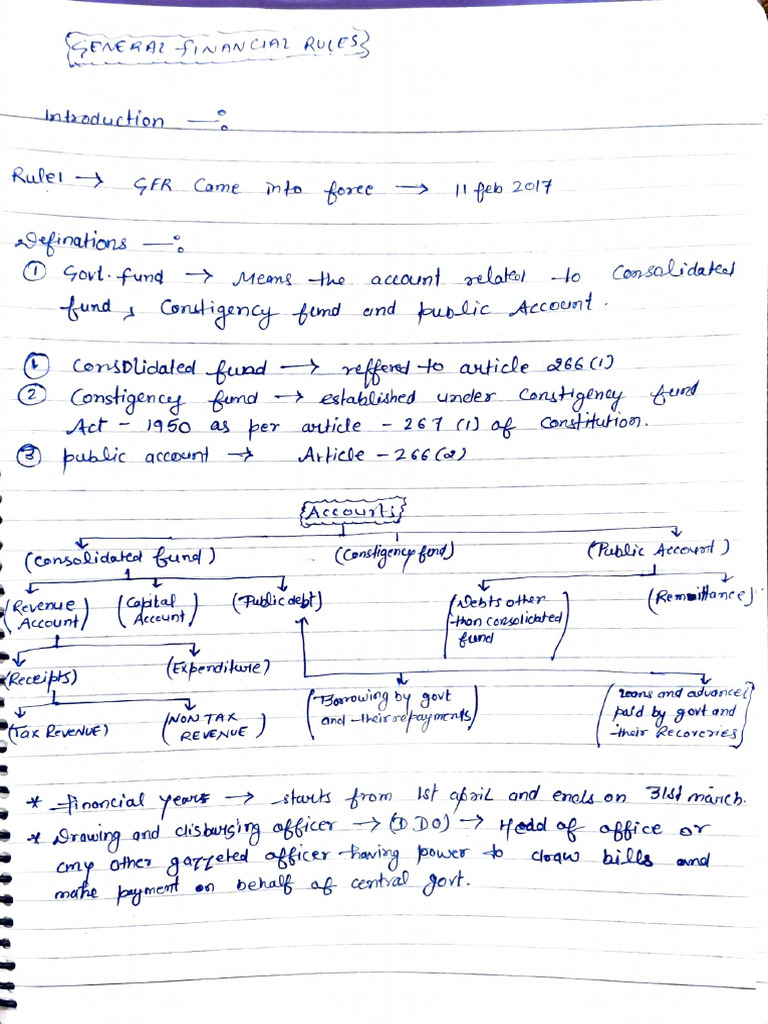 GENERAL FINANCIAL RULES
Introduction —:
Rule1 → GFR Came into force → 11 feb 2017
Definations —:
① Govt. fund → Means the account related to Consalidated
fund, Constigency fund and public Account.
① Consolidated fund → reffered to article 266(1)
② Constigency fund → established under Constigency fund
Act - 1950 as per article - 267 (1) of Constitution.
③ public account → Article - 266(2)
Accounts
(Consolidated fund) (Constigency fund) (Public Account)
(Revenue Account) (Capital Account) (Public debt) (Debts other than consolidated fund) (Remittance)
(Receipts) (Expenditure)
(Tax Revenue) (NON TAX REVENUE) (Borrowing by govt and their repayments) (loans and advances paid by govt and their Recoveries)
* financial years → starts from 1st april and ends on 31st march.
* Drawing and disbursing officer → (DDO) → Head of office or
any other gazzeted officer having power to draw bills and
make payment on behalf of central govt.